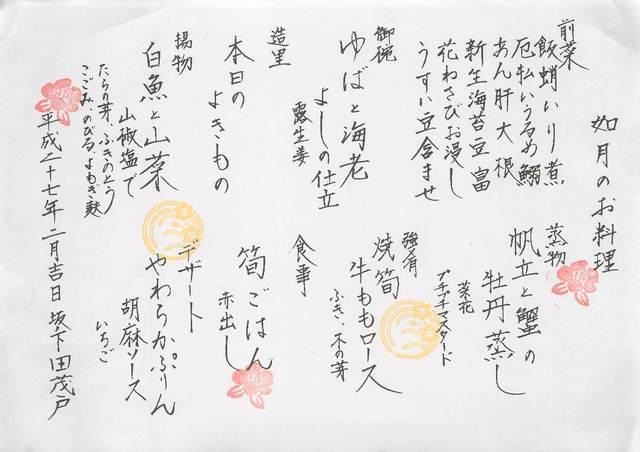 如月のお料理
前菜
飯蛸いり煮
厄払いうるめ鰯
あん肝大根
新生海苔豆富
花わさびお浸し
うすい豆含ませ
御椀
ゆばと海老
よしの仕立
露生姜
造里
本日の
よきもの
揚物
白魚と山菜
山椒塩で
たらの芽、ふきのとう
こごみ、のびる、よもぎ麩
蒸物
帆立と蟹の
牡丹蒸し
菜花
プチプチマスタード
強肴
焼筍
牛ももロース
ふき、木の芽
食事
筍ごはん
赤出し
デザート
やわらかぷりん
胡麻ソース
いちご
平成二十七年二月吉日 坂下田茂戸